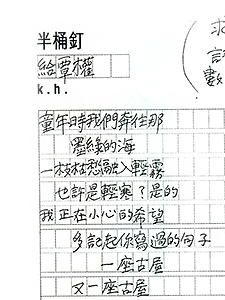 半桶釘
給覃權
k.h.
童年時我們奔往那
墨綠的海
一枝枝愁融入輕霧
也許是輕寒？是的
我正在小心的希望
多記起你寫過的句子
一座古屋
又一座古屋
求
數